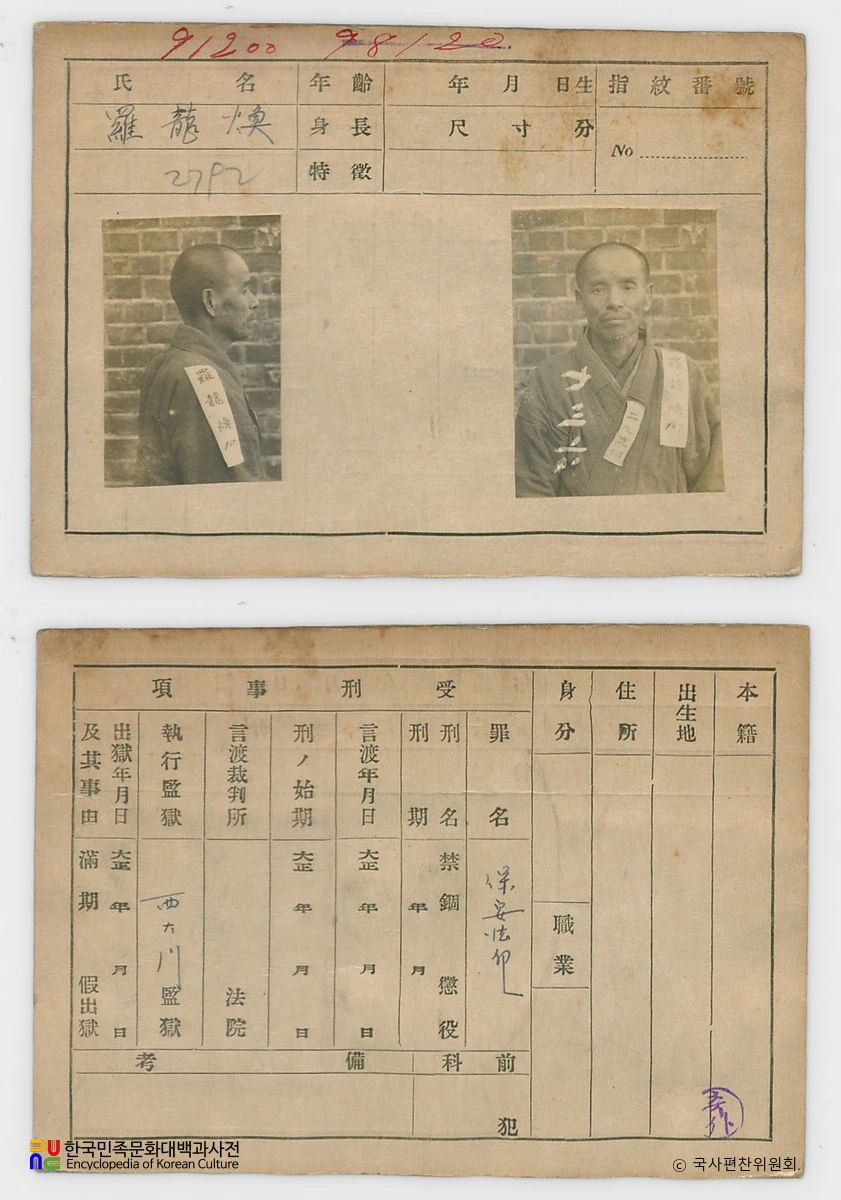 91200 98120
氏名
年齡
年月日生
指紋番號
羅龍煥
身長
尺寸分
No
2792
特徵
羅龍煥
本籍
出生地
住所
身分
職業
受刑事項
罪名
保安法
刑名
禁錮 懲役
刑期
年月
言渡年月日
大正 年 月 日
刑ノ始期
大正 年 月 日
言渡裁判所
法院
執行監獄
西大門監獄
出獄年月日
大正 年 月 日
及其事由
滿期 假出獄
前科
犯
備考
한국민족문화대백과사전
Encyclopedia of Korean Culture
© 국사편찬위원회.